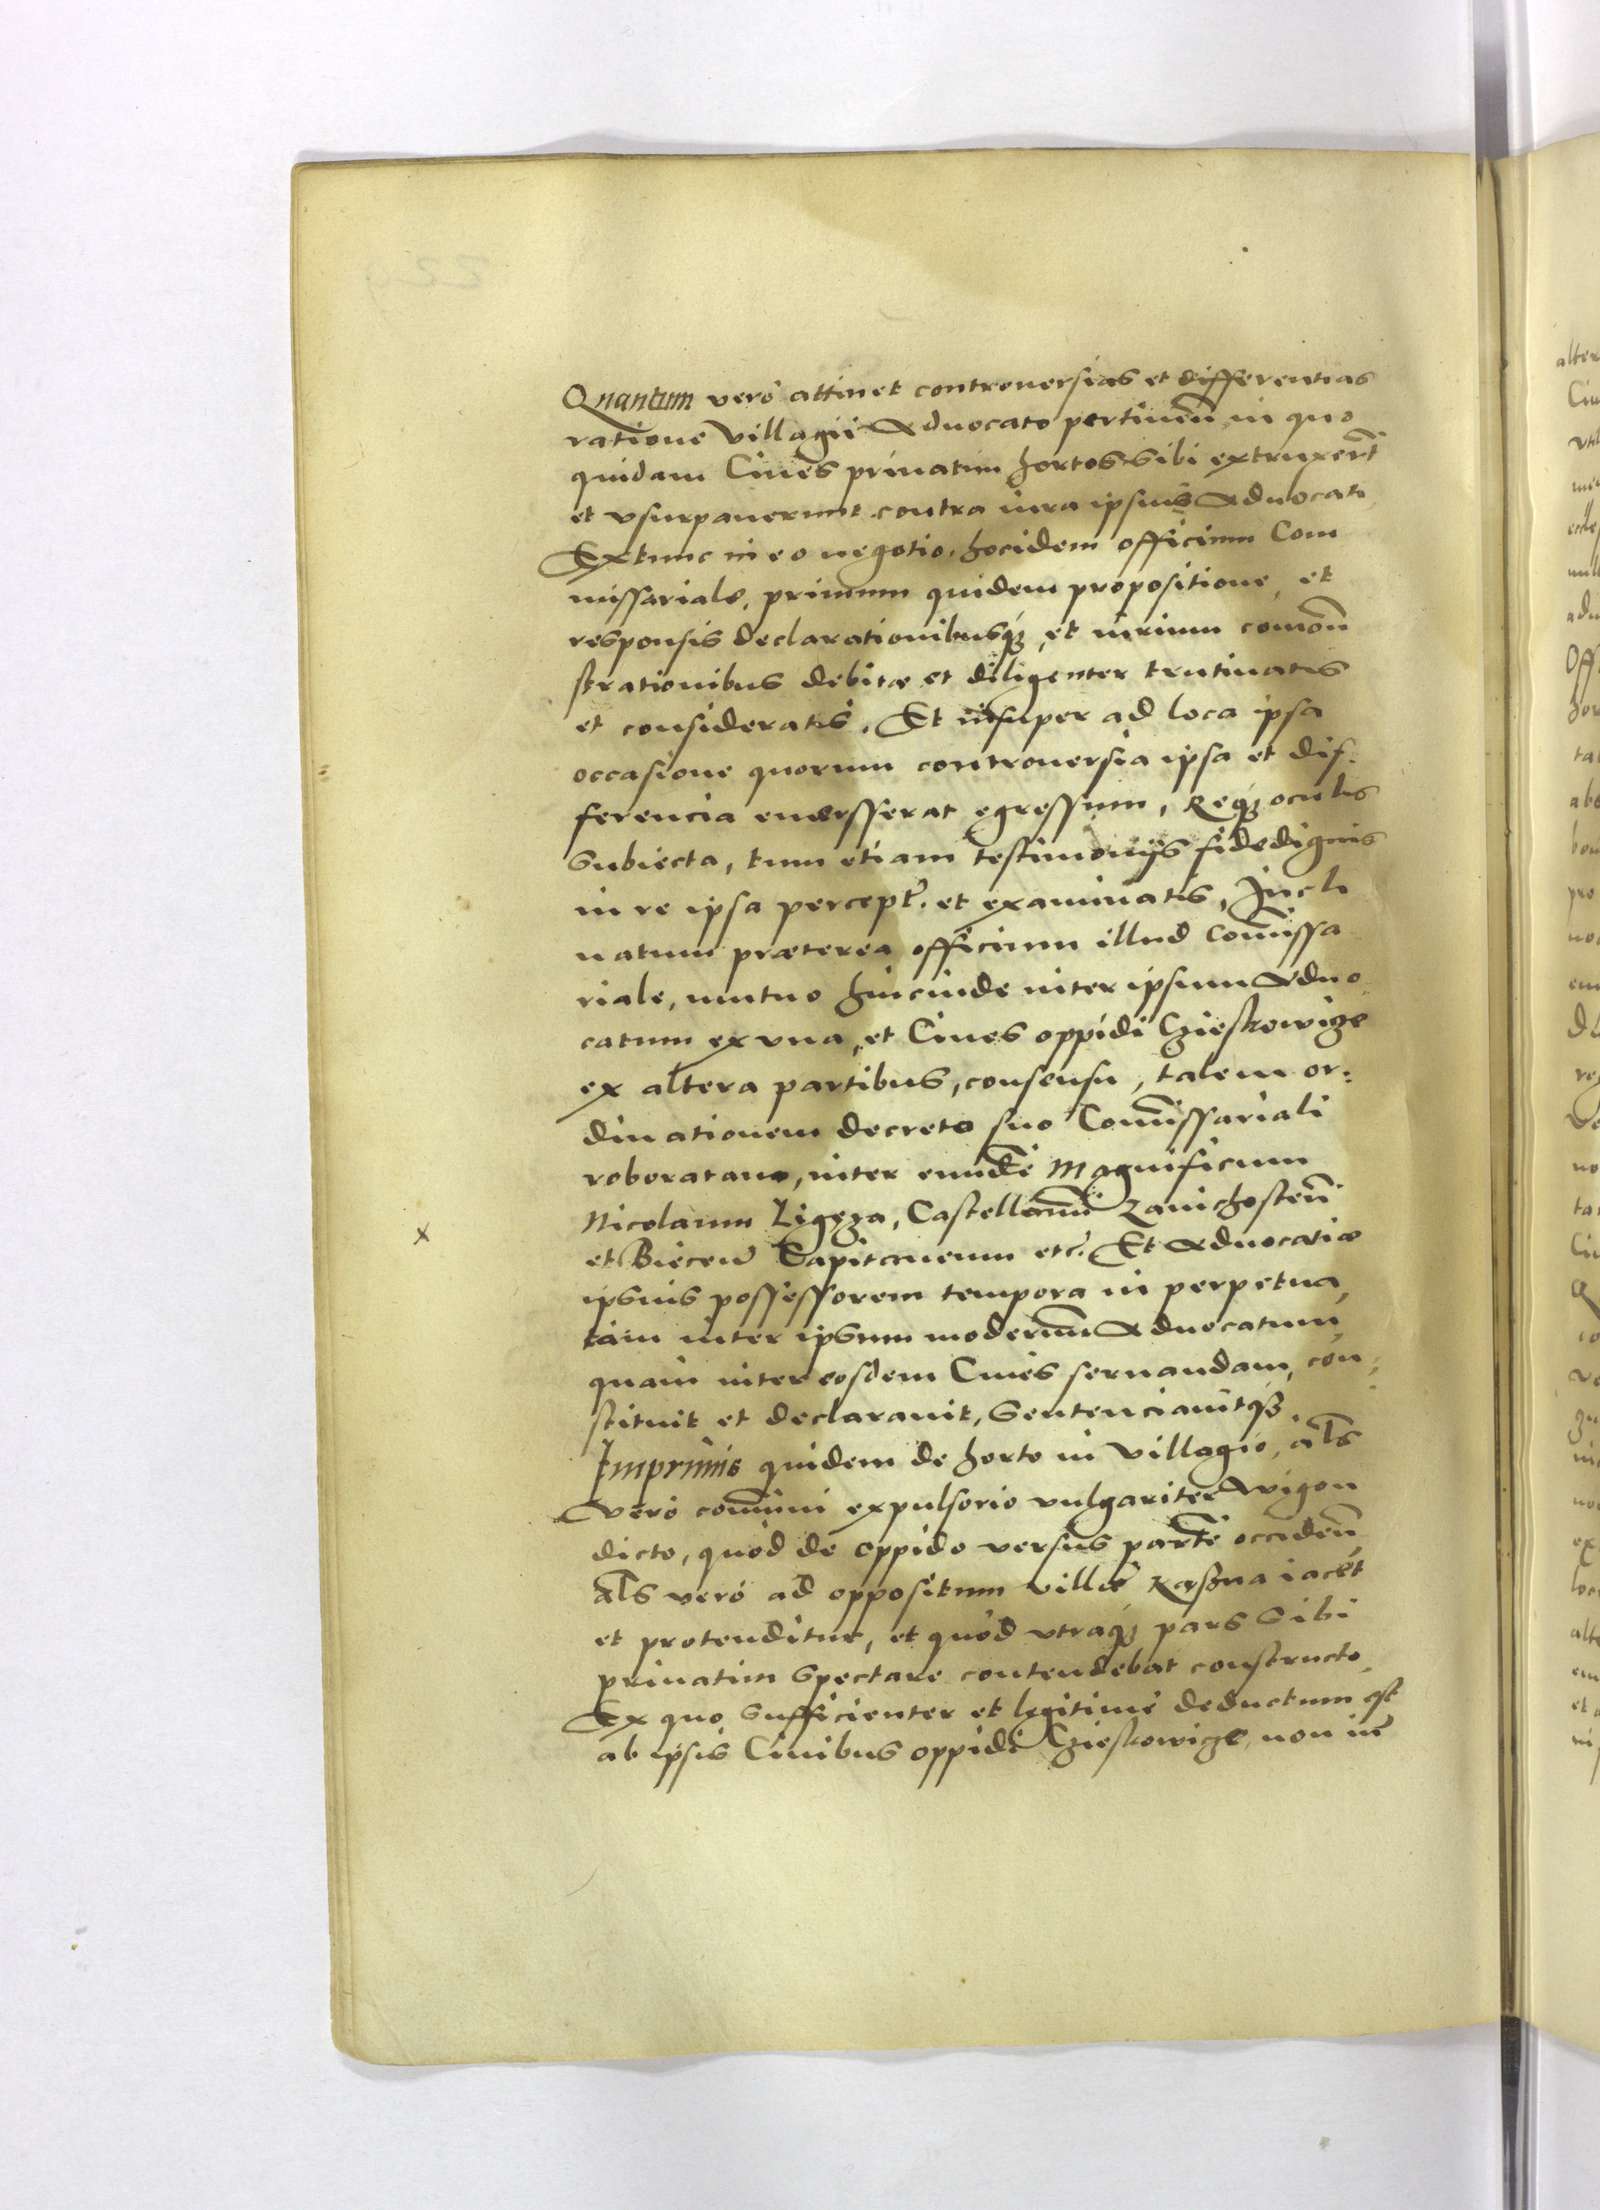 Quantum vero attinet controuersias et differentias
ratione villagii Aduocato pertinen̄ in quo
quidam Ciues priuatim hortos sibi extruxer̄t
et vsurpauerunt contra iura ipsius Aduocati
Extunc in eo negotio, hocidem officium Com
missariale, primum quidem propositione, et
responsis declarationibusq́ꝫ, et iurium comon̄
strationibus debitæ et diligenter trutinatis
et consideratis, Et insuper ad loca ipsa
occasione quorum controuersia ipsa et dif:
ferencia emersserat egressum, Reqꝫ oculis
subiecta, tum etiam testimonijs fidedignis
in re ipsa percept̄. et examinatis, Incli
natum præterea officium illud Com̄issa
riale, mutuo hincinde inter ipsum Aduo
catum ex vna, et Ciues oppidi Czieskowicze
ex altera partibus, consensu, talem or:
dinationem decreto suo Com̄issariali
roboratam, inter eund̄e Magnificum
Nicolaum Ligęza, Castellanum Zauichosten̄
et Biecen̄ Capitaneum etc. Et Aduocatiæ
ipsius possessorem tempora in perpetua,
tam inter ipsum modernum Aduocatum,
quam inter eosdem Ciues seruandam, con:
stituit et declarauit, sentenciauitqꝫ
Imprimis quidem de horto in villagio, al̄s
vero com̄uni expulsorio vulgariter Wigon
dicto, quod de oppido versus part̄e occiden̄
al̄s vero ad oppositum villæ Kąszna iacet
et protenditur, et quod vtraqꝫ pars sibi
priuatim spectare contendebat constructo,
Ex quo sufficienter et legitime deductum est
ab ipsis Ciuibus oppidi Czieskowicze, non in̄
x